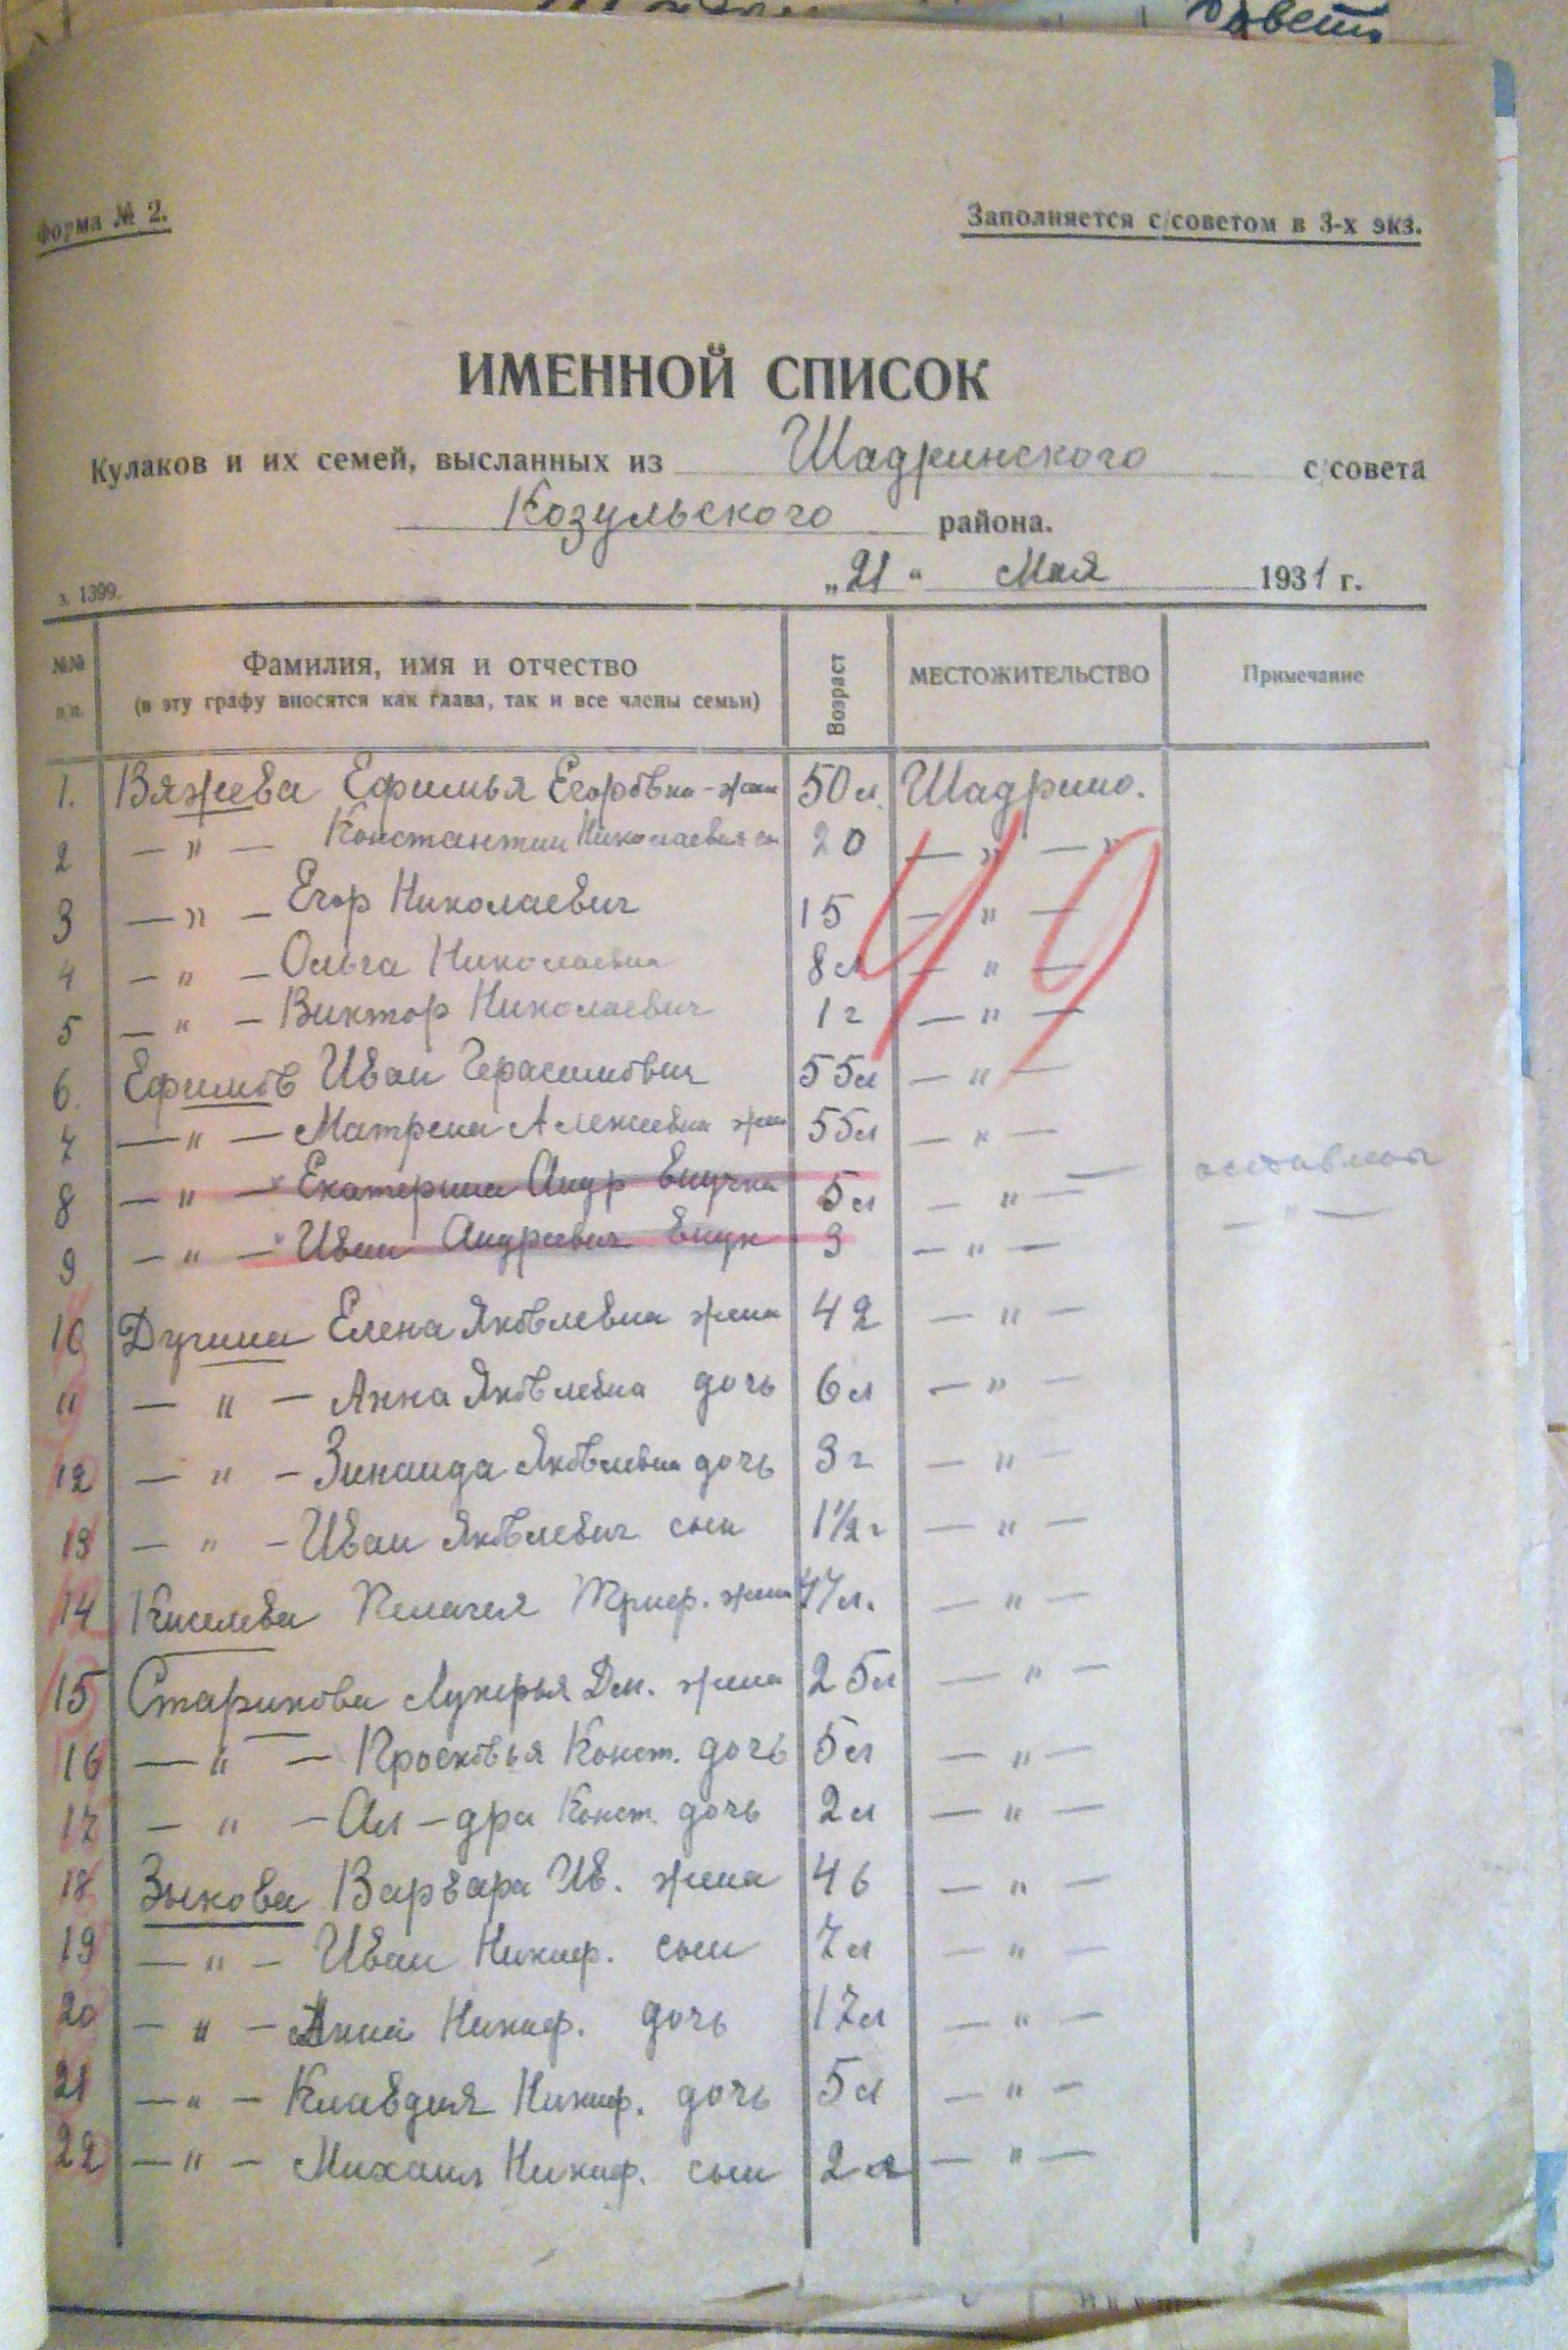 Форма № 2.
Заполняется с/советом в 3-х экз.
ИМЕННОЙ СПИСОК
Кулаков и их семей, высланных из Шадринского с/совета
Козульского района.
„21“ Мая 1931 г.
з. 1399.
№№ п/п. Фамилия, имя и отчество (в эту графу вносятся как глава, так и все члены семьи) Возраст МЕСТОЖИТЕЛЬСТВО Примечание
1. Вяжева Ефимья Егоровна - жена 50 л. Шадрино.
2 — " — Константин Николаевич 20 — " — "
3 — " — Егор Николаевич 15 — " —
4 — " — Ольга Николаевна 8 л — " —
5 — " — Виктор Николаевич 1 г — " —
49
6. Ефимов Иван Герасимович 55 л — " —
7 — " — Матрена Алексеевна жена 55 л — " —
8 — " — Екатерина Андр внучка 5 л — " — оставлена
9 — " — Иван Андреевич внук 3 — " — — " —
10 Дугина Елена Яковлевна жена 42 — " —
11 — " — Анна Яковлевна дочь 6 л — " —
12 — " — Зинаида Яковлевна дочь 3 г — " —
13 — " — Иван Яковлевич сын 1½ г — " —
14 Киселева Пелагея жена л. — " —
15 Старикова Лукерья Дм. жена 25 л — " —
16 — " — Просковья Конст. дочь 5 л — " —
17 — " — Ал-дра Конст. дочь 2 л — " —
18 Зыкова Варвара Ив. жена 46 — " —
19 — " — Иван Никиф. сын 7 л — " —
20 — " — Анна Никиф. дочь 17 л — " —
21 — " — Клавдия Никиф. дочь 5 л — " —
22 — " — Михаил Никиф. сын 2 г — " —